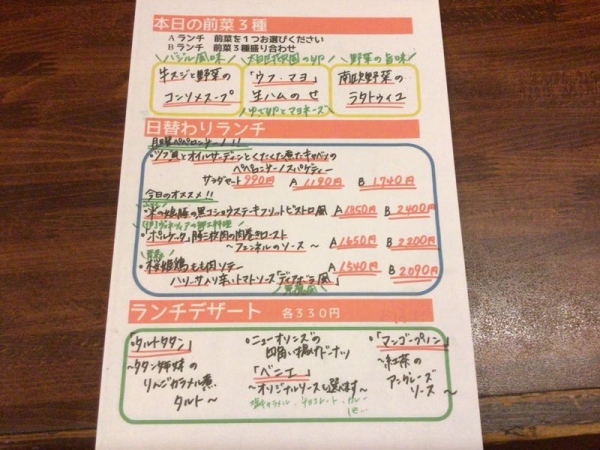 本日の前菜3種
Aランチ 前菜を1つお選びください
Bランチ 前菜3種盛り合わせ
バジル風味
野菜の旨味
牛スジと野菜の
コンソメスープ
「ウフ・マヨ」
生ハムのせ
ゆで卵とマヨネーズ
南欧野菜の
ラタトゥイユ
日替わりランチ
ツブ貝とオイルサーディンとくたくた煮たキャベツの
ペペロンチーノスパゲティー
サラダセット 990円 A 1190円 B 1740円
今日のオススメ!!
米の娘豚の黒コショウステーキフリットビストロ風 A 1850円 B 2400円
"ポルケッタ"豚バラ肉の肉巻きロースト
~フェンネルのソース~ A 1650円 B 2200円
桜姫鶏もも肉ソテー A 1540円 B 2090円
ハリッサ入り辛いトマトソース「ディアボラ風」
悪魔風
ランチデザート 各330円
"タルトタタン"
~タタン姉妹の
りんごカラメル煮
タルト~
・ニューオリンズの
四角い揚げドーナツ
「ベニエ」
~オリジナルソースも選べます~
塩キャラメル・チョコレート・
・「マンゴープリン」
~紅茶の
アングレーズ
ソース~